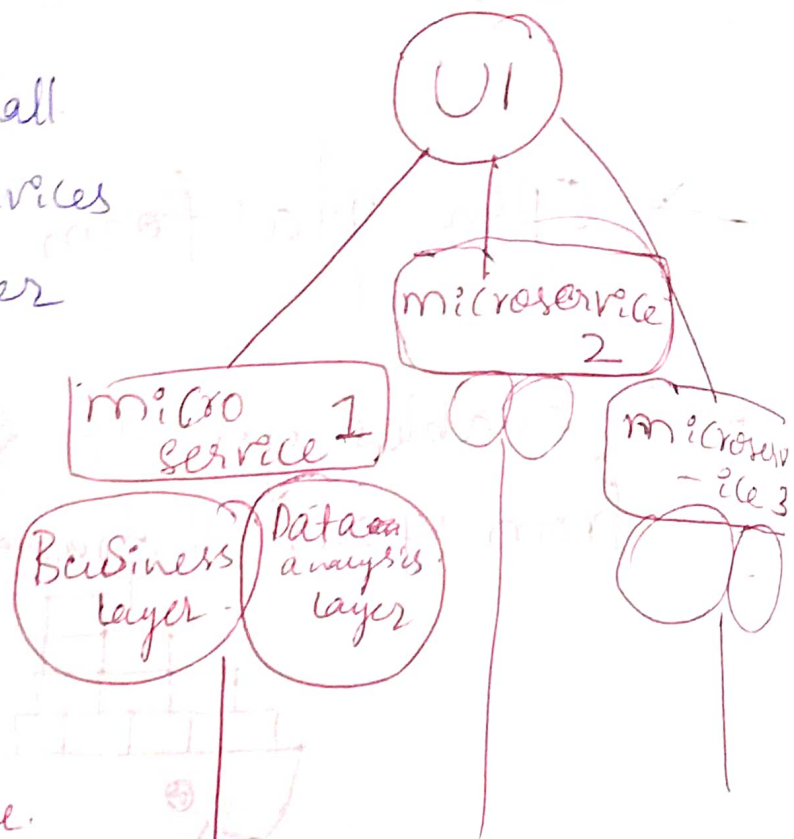 UI
all
vices
er
microservice
2
micro 1
service
microserv
-ice 3
Business
layer
Data
analysis
layer
e.